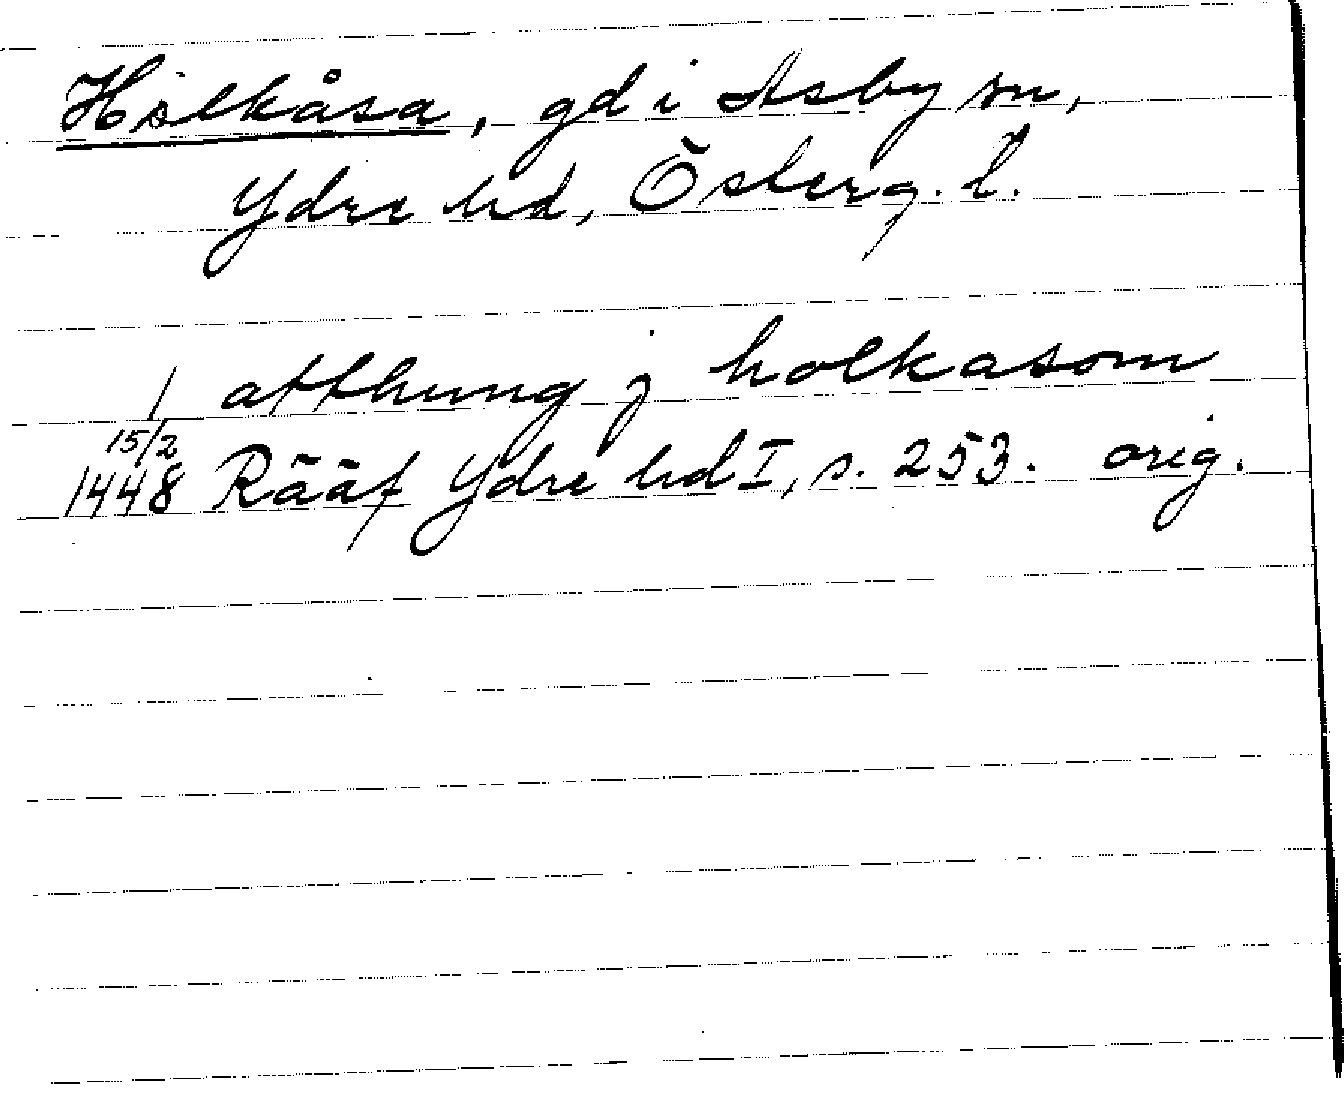 Holkåsa, gd i Asby sn,
Ydre hd, Österg. l.
1 atthung j holkasom
15/2
1448 Rääf Ydre hd I, s. 253. orig.